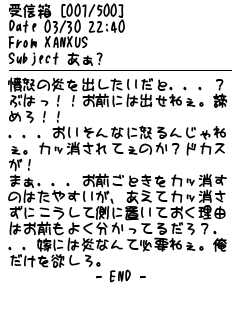 受信箱 [001/500]
Date 03/30 22:40
From XANXUS
Subject あぁ?
憤怒の炎を出したいだと．．．？
ぶはっ！！お前には出せねぇ。諦
めろ！！
．．．おいそんなに怒るんじゃね
ぇ。カッ消されてぇのか？ドカス
が！
まぁ．．．お前ごときをカッ消す
のはたやすいが、あえてカッ消さ
ずにこうして側に置いておく理由
はお前もよく分かってるだろ？．
．．嫁には炎なんて必要ねぇ。俺
だけを欲しろ。
- END -